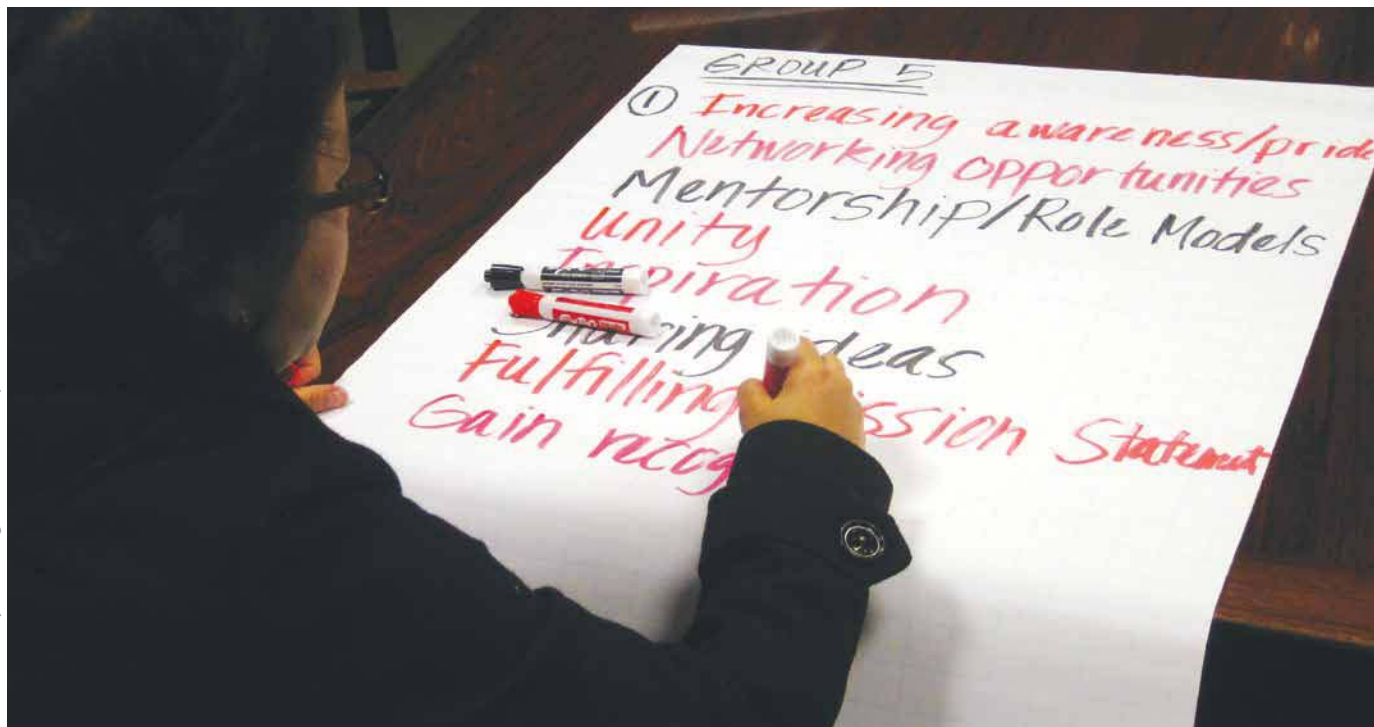 GROUP 5
① Increasing awareness/pride
Networking opportunities
Mentorship/Role Models
Unity
Inspiration
Sharing ideas
Fulfilling Mission Statement
Gain recog